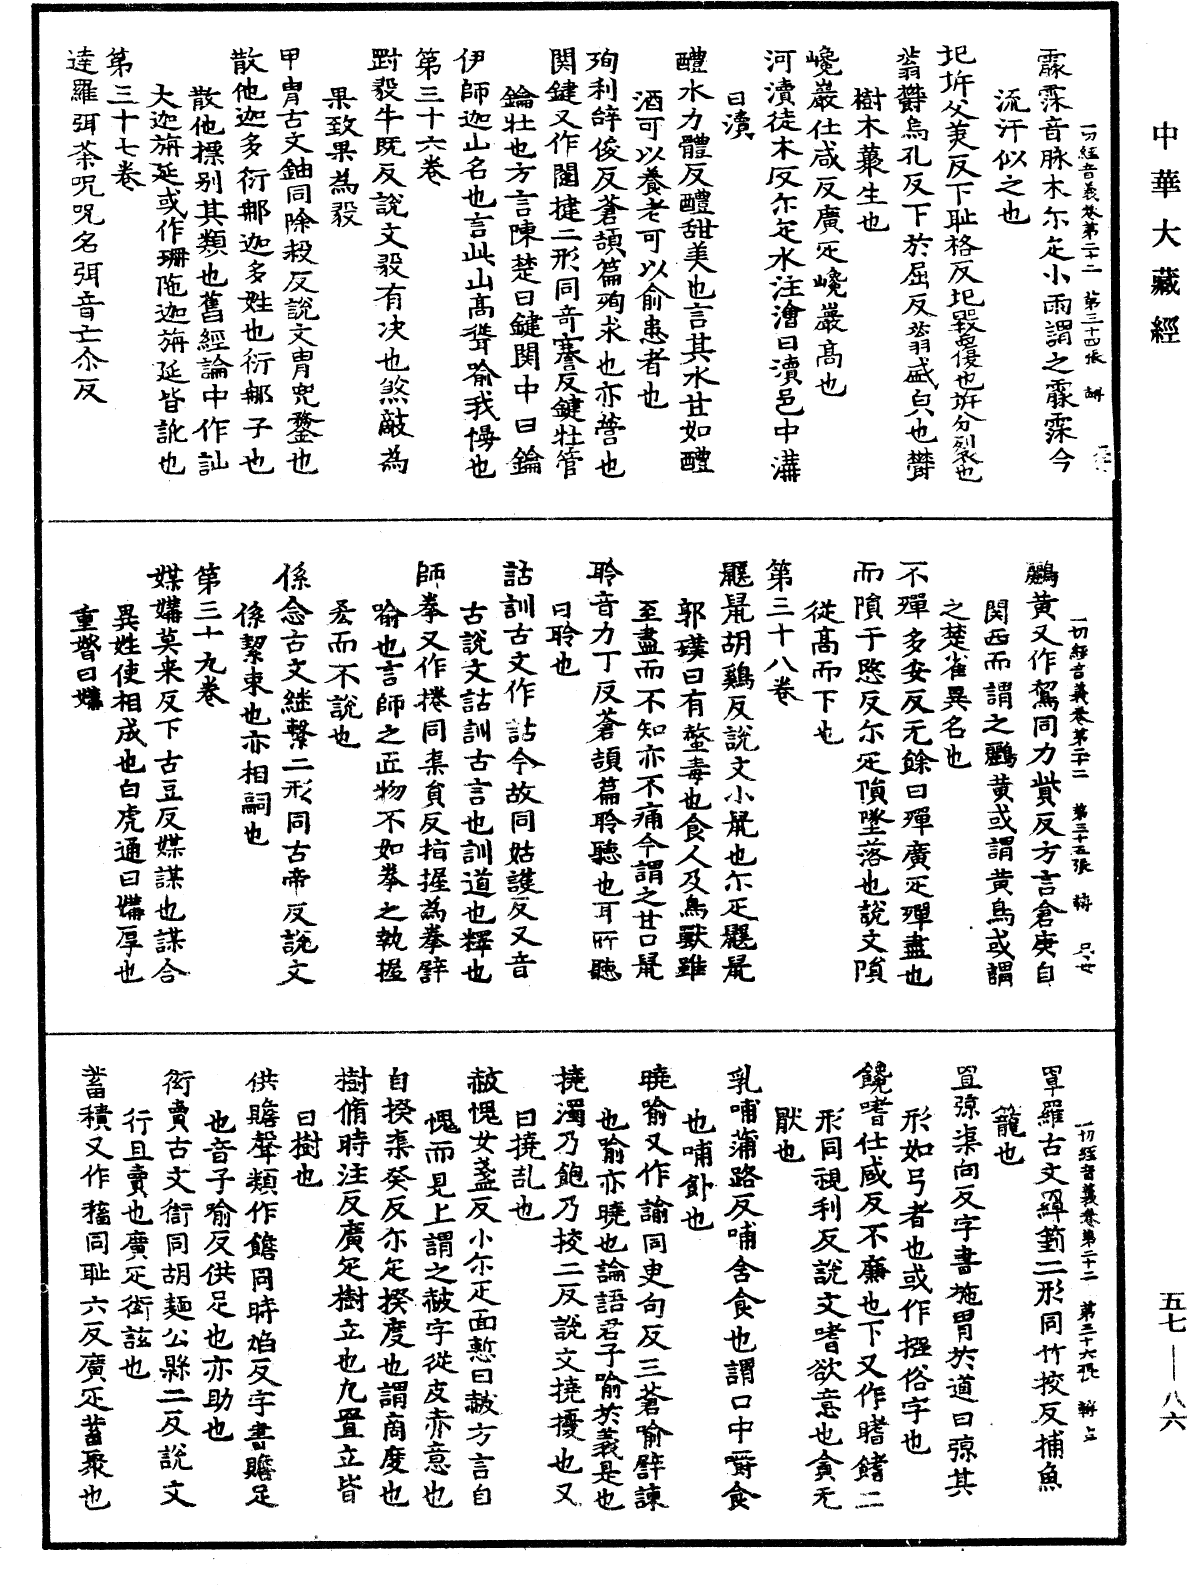 中華大藏經
一切經音義卷第二十二 第三十四張
霢霂音脉木尔疋小雨謂之霢霂今
流汗似之也
圮坼父美反下耻格反圮毀也坼分裂也
蓊欝烏孔反下於屈反蓊盛皃也欝
樹木叢生也
巉巖仕咸反廣疋巉巖高也
河瀆徒木反尔疋水注澮曰瀆邑中溝
曰瀆
醴水力體反醴甜美也言其水甘如醴
酒可以養老可以俞患者也
殉利辝俊反蒼頡篇殉求也亦營也
関鍵又作闥揵二形同奇蹇反鍵牡管
鑰壯也方言陳楚曰鍵関中曰鑰
伊師迦山名也言此山高聳喻我慢也
第三十六卷
對毅牛既反說文毅有決也煞敵為
果致果為毅
甲冑古文鈾同除救反說文冑兜鍪也
散他迦多衍那迦多姓也衍那子也
散他標別其類也舊經論中作訕
大迦旃延或作珊陁迦旃延皆訛也
第三十七卷
達羅弭荼呪呪名弭音亡尒反
一切經音義卷第二十二 第三十五張
鸝黃又作鴷同力貲反方言倉庚自
関西而謂之鸝黃或謂黃鳥或謂
之楚雀異名也
不殫多安反无餘曰殫廣疋殫盡也
而隕于愍反尔疋隕墜落也說文隕
從高而下也
第三十八卷
鼷鼠胡鷄反說文小鼠也尔疋鼷鼠
郭璞曰有螫毒也食人及鳥獸雖
至盡而不知亦不痛今謂之甘口鼠
聆音力丁反蒼頡篇聆聽也耳所聽
曰聆也
詁訓古文作詁今故同姑護反又音
古說文詁訓古言也訓道也釋也
師拳又作捲同渠員反指握為拳譬
喻也言師之匠物不如拳之執握
悋而不說也
係念古文継繫二形同古帝反說文
係絜束也亦相嗣也
第三十九卷
媒媾莫来反下古豆反媒謀也謀合
異姓使相成也白虎通曰媾厚也
重婚曰媾
一切經音義卷第二十二 第三十六張
罩羅古文罩䈇二形同竹挍反捕魚
籠也
罝弶渠向反字書施罥於道曰弶其
形如弓者也或作摾俗字也
饞嗜仕咸反不廉也下又作𦞯鰭二
形同視利反說文嗜欲意也貪无
猒也
乳哺蒲路反哺含食也謂口中嚼食
也哺飤也
曉喻又作諭同史句反三蒼喻譬諫
也喻亦曉也論語君子喻於義是也
撓濁乃飽乃挍二反說文撓擾也又
曰撓乱也
赧愧女盞反小尔疋面慙曰赧方言自
愧而見上謂之赧字從皮赤意也
自揆渠癸反尔疋揆度也謂商度也
樹脩時注反廣疋樹立也凡置立皆
曰樹也
供贍聲類作饍同時焰反字書贍足
也音子喻反供足也亦助也
衒賣古文衙同胡麺公縣二反說文
行且賣也廣疋衒詃也
蓄積又作稸同耻六反廣疋蓄聚也
五七——八六